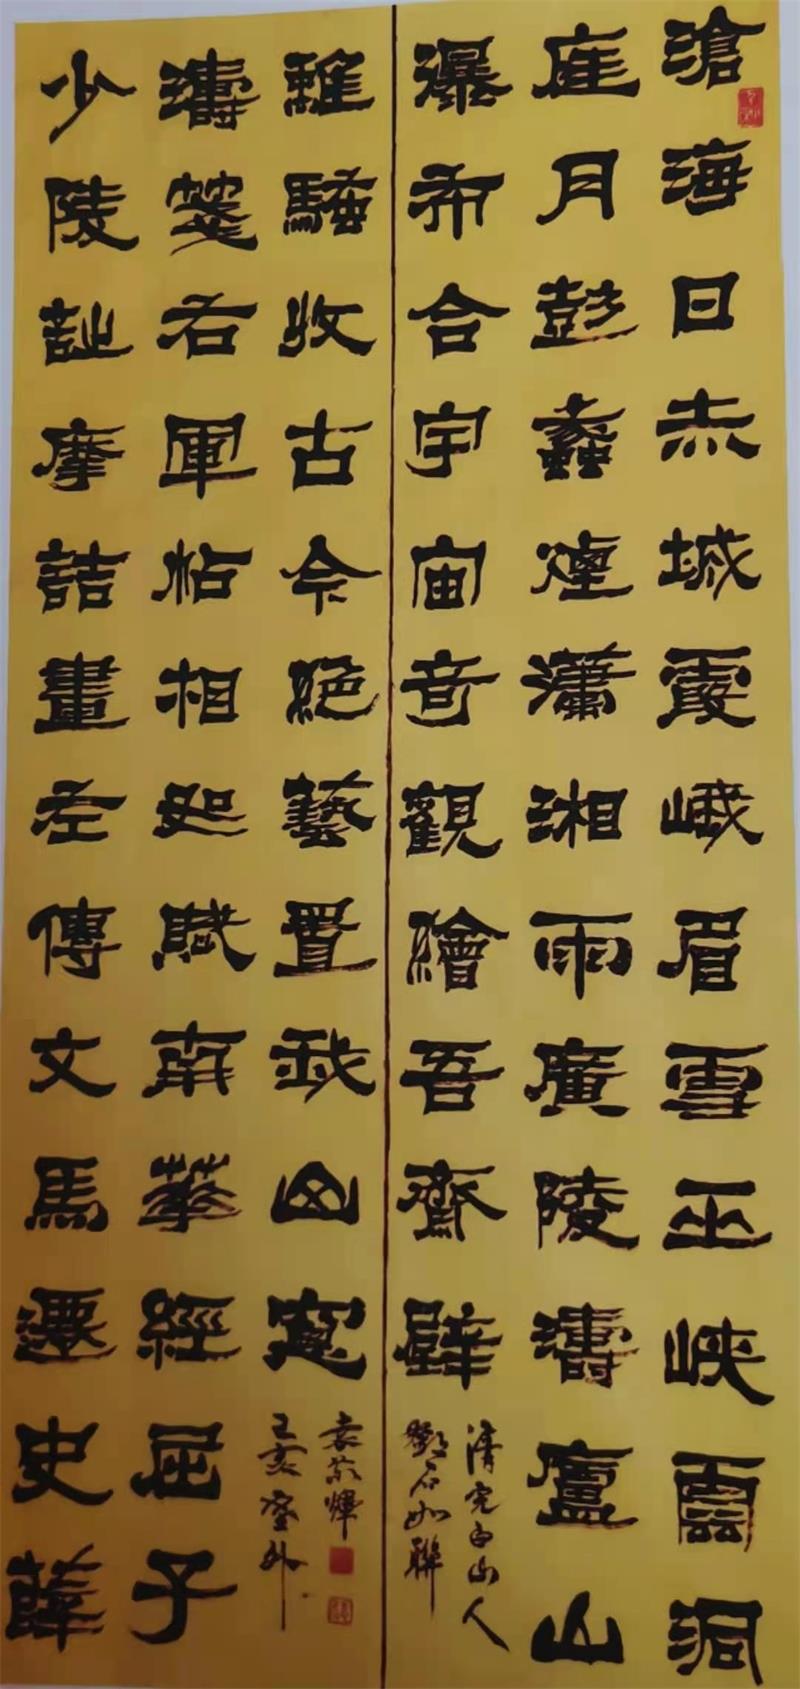 滄海日赤城霞峨眉雪巫峽雲洞
庭月彭蠡煙瀟湘雨廣陵濤廬山
瀑布合宇宙奇觀繪吾齋壁
清完白山人
鄧石如聯
少陵詩摩詰畫左傳文馬遷史薛
濤箋右軍帖相如賦南華經屈子
離騷收古今絕藝置我山窗
袁
己亥塞外